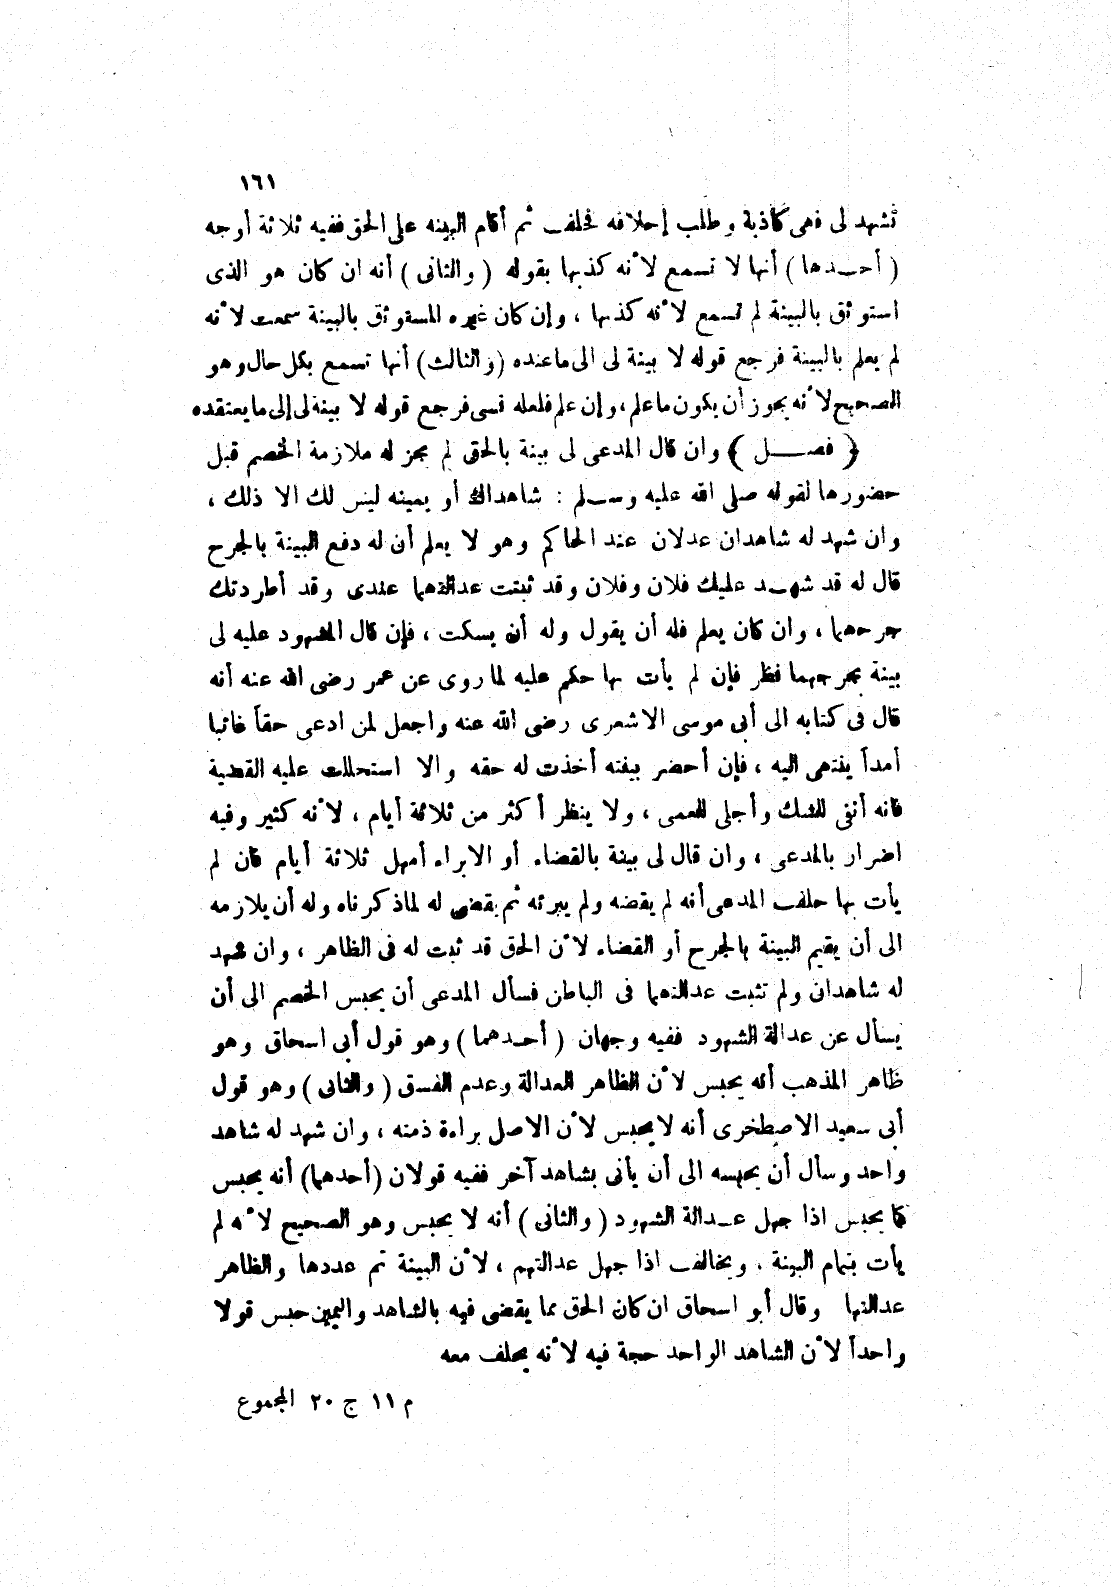 ١٦١
تشهد لى فهى كاذبة وطلب إحلافه فحلف ثم أقام البينة على الحق ففيه ثلاثة أوجه
( أحــدها ) أنها لا تسمع لأنه كذبها بقوله ( والثانى ) أنه ان كان هو الذى
استوثق بالبينة لم تسمع لأنه كذبها ، وإن كان غيره المستوثق بالبينة سمعت لأنه
لم يعلم بالبينة فرجع قوله لا بينة لى الى ما عنده (والثالث) أنها تسمع بكل حال وهو
الصحيح لأنه يجوز أن يكون ما علم، وإن علم فلعله نسى فرجع قوله لا بينة لى إلى ما يعتقده
﴿ فصــــل ﴾ وان قال المدعى لى بينة بالحق لم يجز له ملازمة الخصم قبل
حضورها لقوله صلى الله عليه وســلم : شاهداك أو يمينه ليس لك الا ذلك ،
وان شهد له شاهدان عدلان عند الحاكم وهو لا يعلم أن له دفع البينة بالجرح
قال له قد شهــد عليك فلان وفلان وقد ثبتت عدالتهما عندى وقد أطردتك
جرحهما ، وان كان يعلم فله أن يقول وله أن يسكت ، فإن قال المشهود عليه لى
بينة بجرحهما نظر فإن لم يأت بها حكم عليه لما روى عن عمر رضى الله عنه أنه
قال فى كتابه الى أبى موسى الاشعرى رضى الله عنه واجعل لمن ادعى حقاً غائبا
أمداً ينتهى اليه ، فإن أحضر بينته أخذت له حقه والا استحللت عليه القضية
فانه أنفى للشك وأجلى للعمى ، ولا ينظر أكثر من ثلاثة أيام ، لأنه كثير وفيه
اضرار بالمدعى ، وان قال لى بينة بالقضاء أو الابراء أمهل ثلاثة أيام فان لم
يأت بها حلف المدعى أنه لم يقضه ولم يبرئه ثم يقضى له لما ذكرناه وله أن يلازمه
الى أن يقيم البينة بالجرح أو القضاء لأن الحق قد ثبت له فى الظاهر ، وان شهد
له شاهدان ولم تثبت عدالتهما فى الباطن فسأل المدعى أن يحبس الخصم الى أن
يسأل عن عدالة الشهود ففيه وجهان ( أحــدهما ) وهو قول أبى اسحاق وهو
ظاهر المذهب أنه يحبس لأن الظاهر العدالة وعدم الفسق ( والثانى ) وهو قول
أبى سعيد الاصطخرى أنه لا يحبس لأن الاصل براءة ذمته ، وان شهد له شاهد
واحد وسأل أن يحبسه الى أن يأتى بشاهد آخر ففيه قولان (أحدهما) أنه يحبس
كما يحبس اذا جهل عــدالة الشهود ( والثانى ) أنه لا يحبس وهو الصحيح لأنه لم
يأت بتمام البينة ، ويخالف اذا جهل عدالتهم ، لأن البينة تم عددها والظاهر
عدالتها وقال أبو اسحاق ان كان الحق مما يقضى فيه بالشاهد واليمين حبس قولا
واحداً لأن الشاهد الواحد حجة فيه لأنه يحلف معه
م ١١ ج ٢٠ المجموع